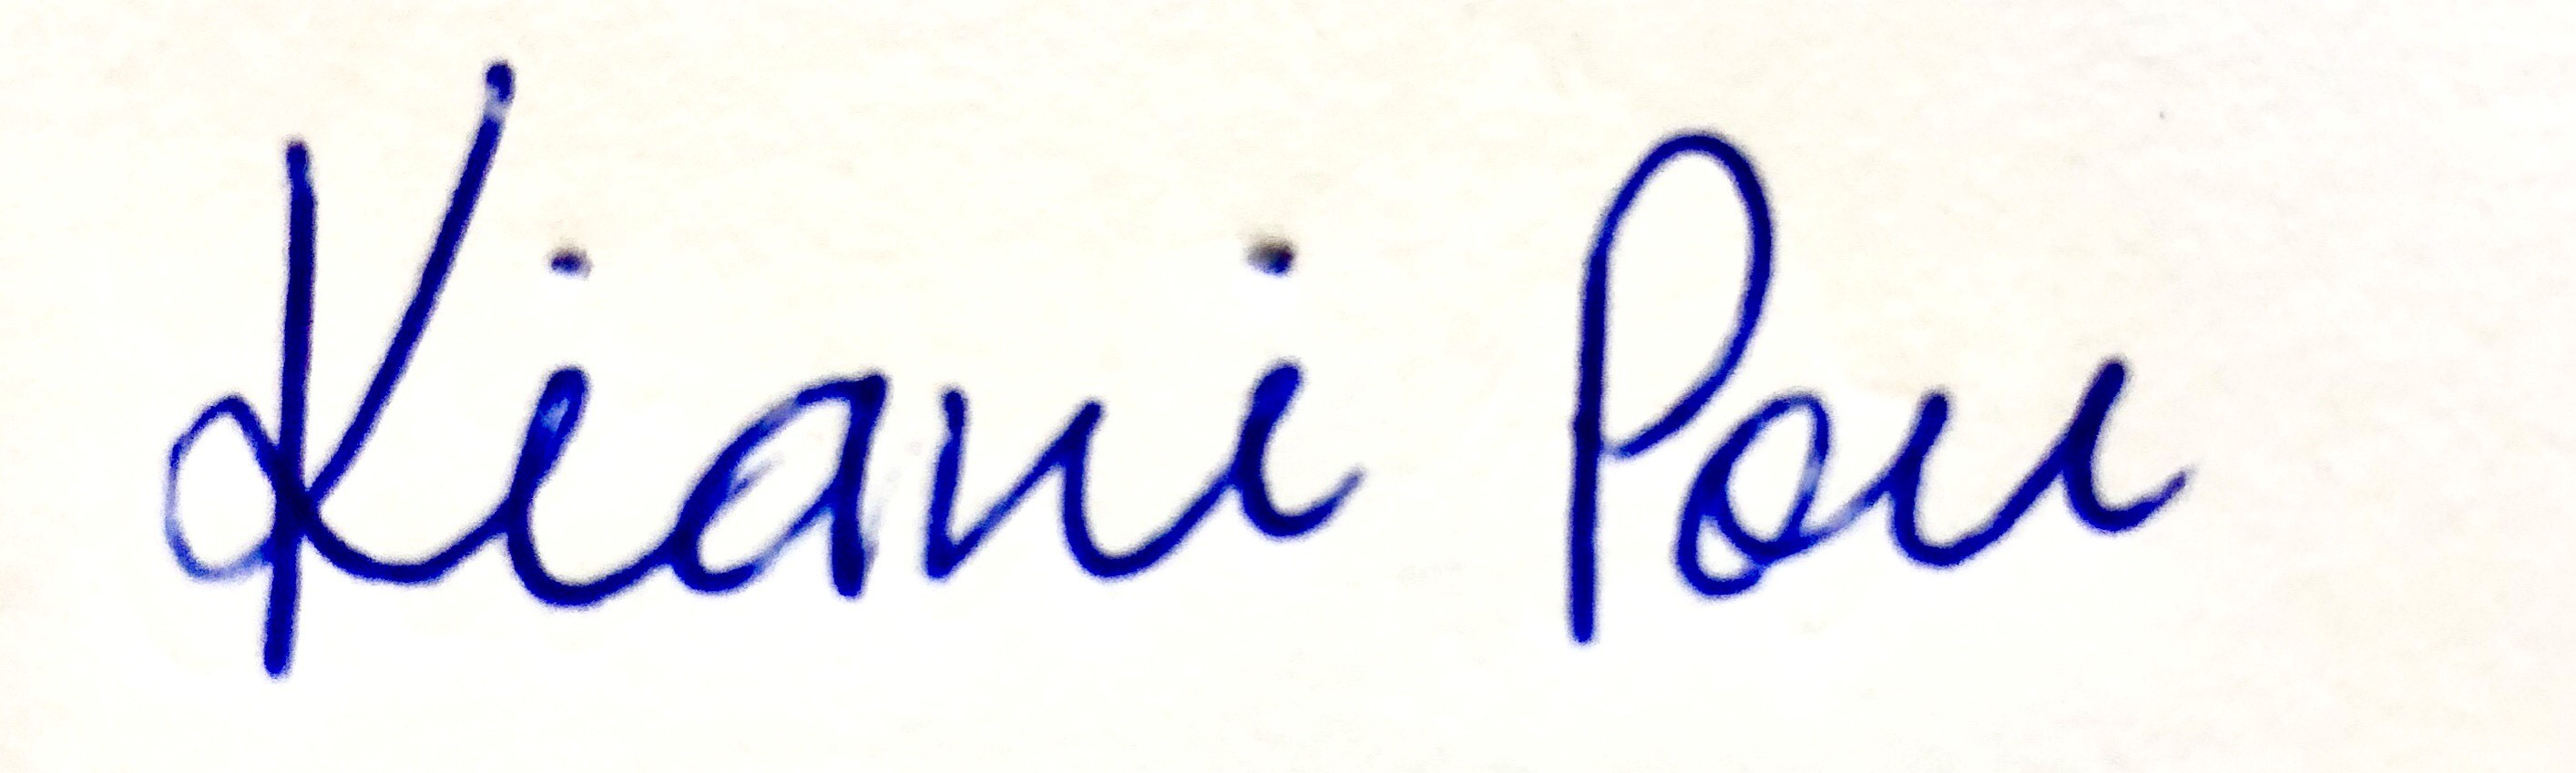 Kiani Pou